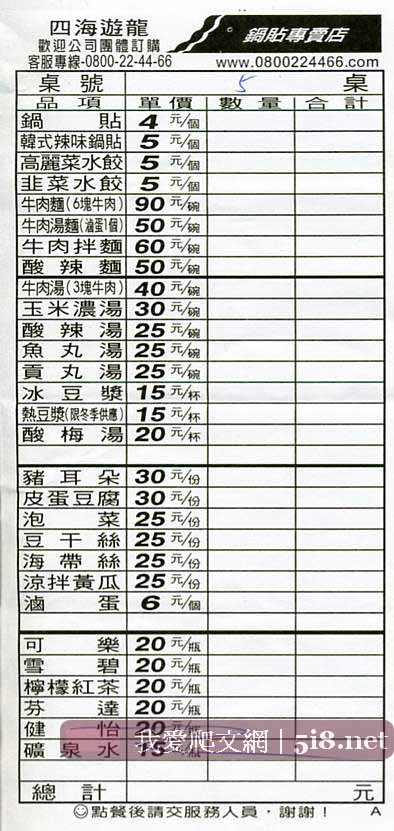 四海遊龍
歡迎公司團體訂購
客服專線-0800-22-44-66
鍋貼專賣店
www.0800224466.com
桌號 5 桌
品項 單價 數量 合計
鍋貼 4元/個
韓式辣味鍋貼 5元/個
高麗菜水餃 5元/個
韭菜水餃 5元/個
牛肉麵(6塊牛肉) 90元/碗
牛肉湯麵(滷蛋1個) 50元/碗
牛肉拌麵 60元/碗
酸辣麵 50元/碗
牛肉湯(3塊牛肉) 40元/碗
玉米濃湯 30元/碗
酸辣湯 25元/碗
魚丸湯 25元/碗
貢丸湯 25元/碗
冰豆漿 15元/杯
熱豆漿(限冬季供應) 15元/杯
酸梅湯 20元/杯
豬耳朵 30元/份
皮蛋豆腐 30元/份
泡菜 25元/份
豆干絲 25元/份
海帶絲 25元/份
涼拌黃瓜 25元/份
滷蛋 6元/個
可樂 20元/瓶
雪碧 20元/瓶
檸檬紅茶 20元/瓶
芬達 20元/瓶
健怡 20元/瓶
礦泉水 15元/瓶
我愛爬文網 | 5i8.net
總計 元
點餐後請交服務人員,謝謝! A